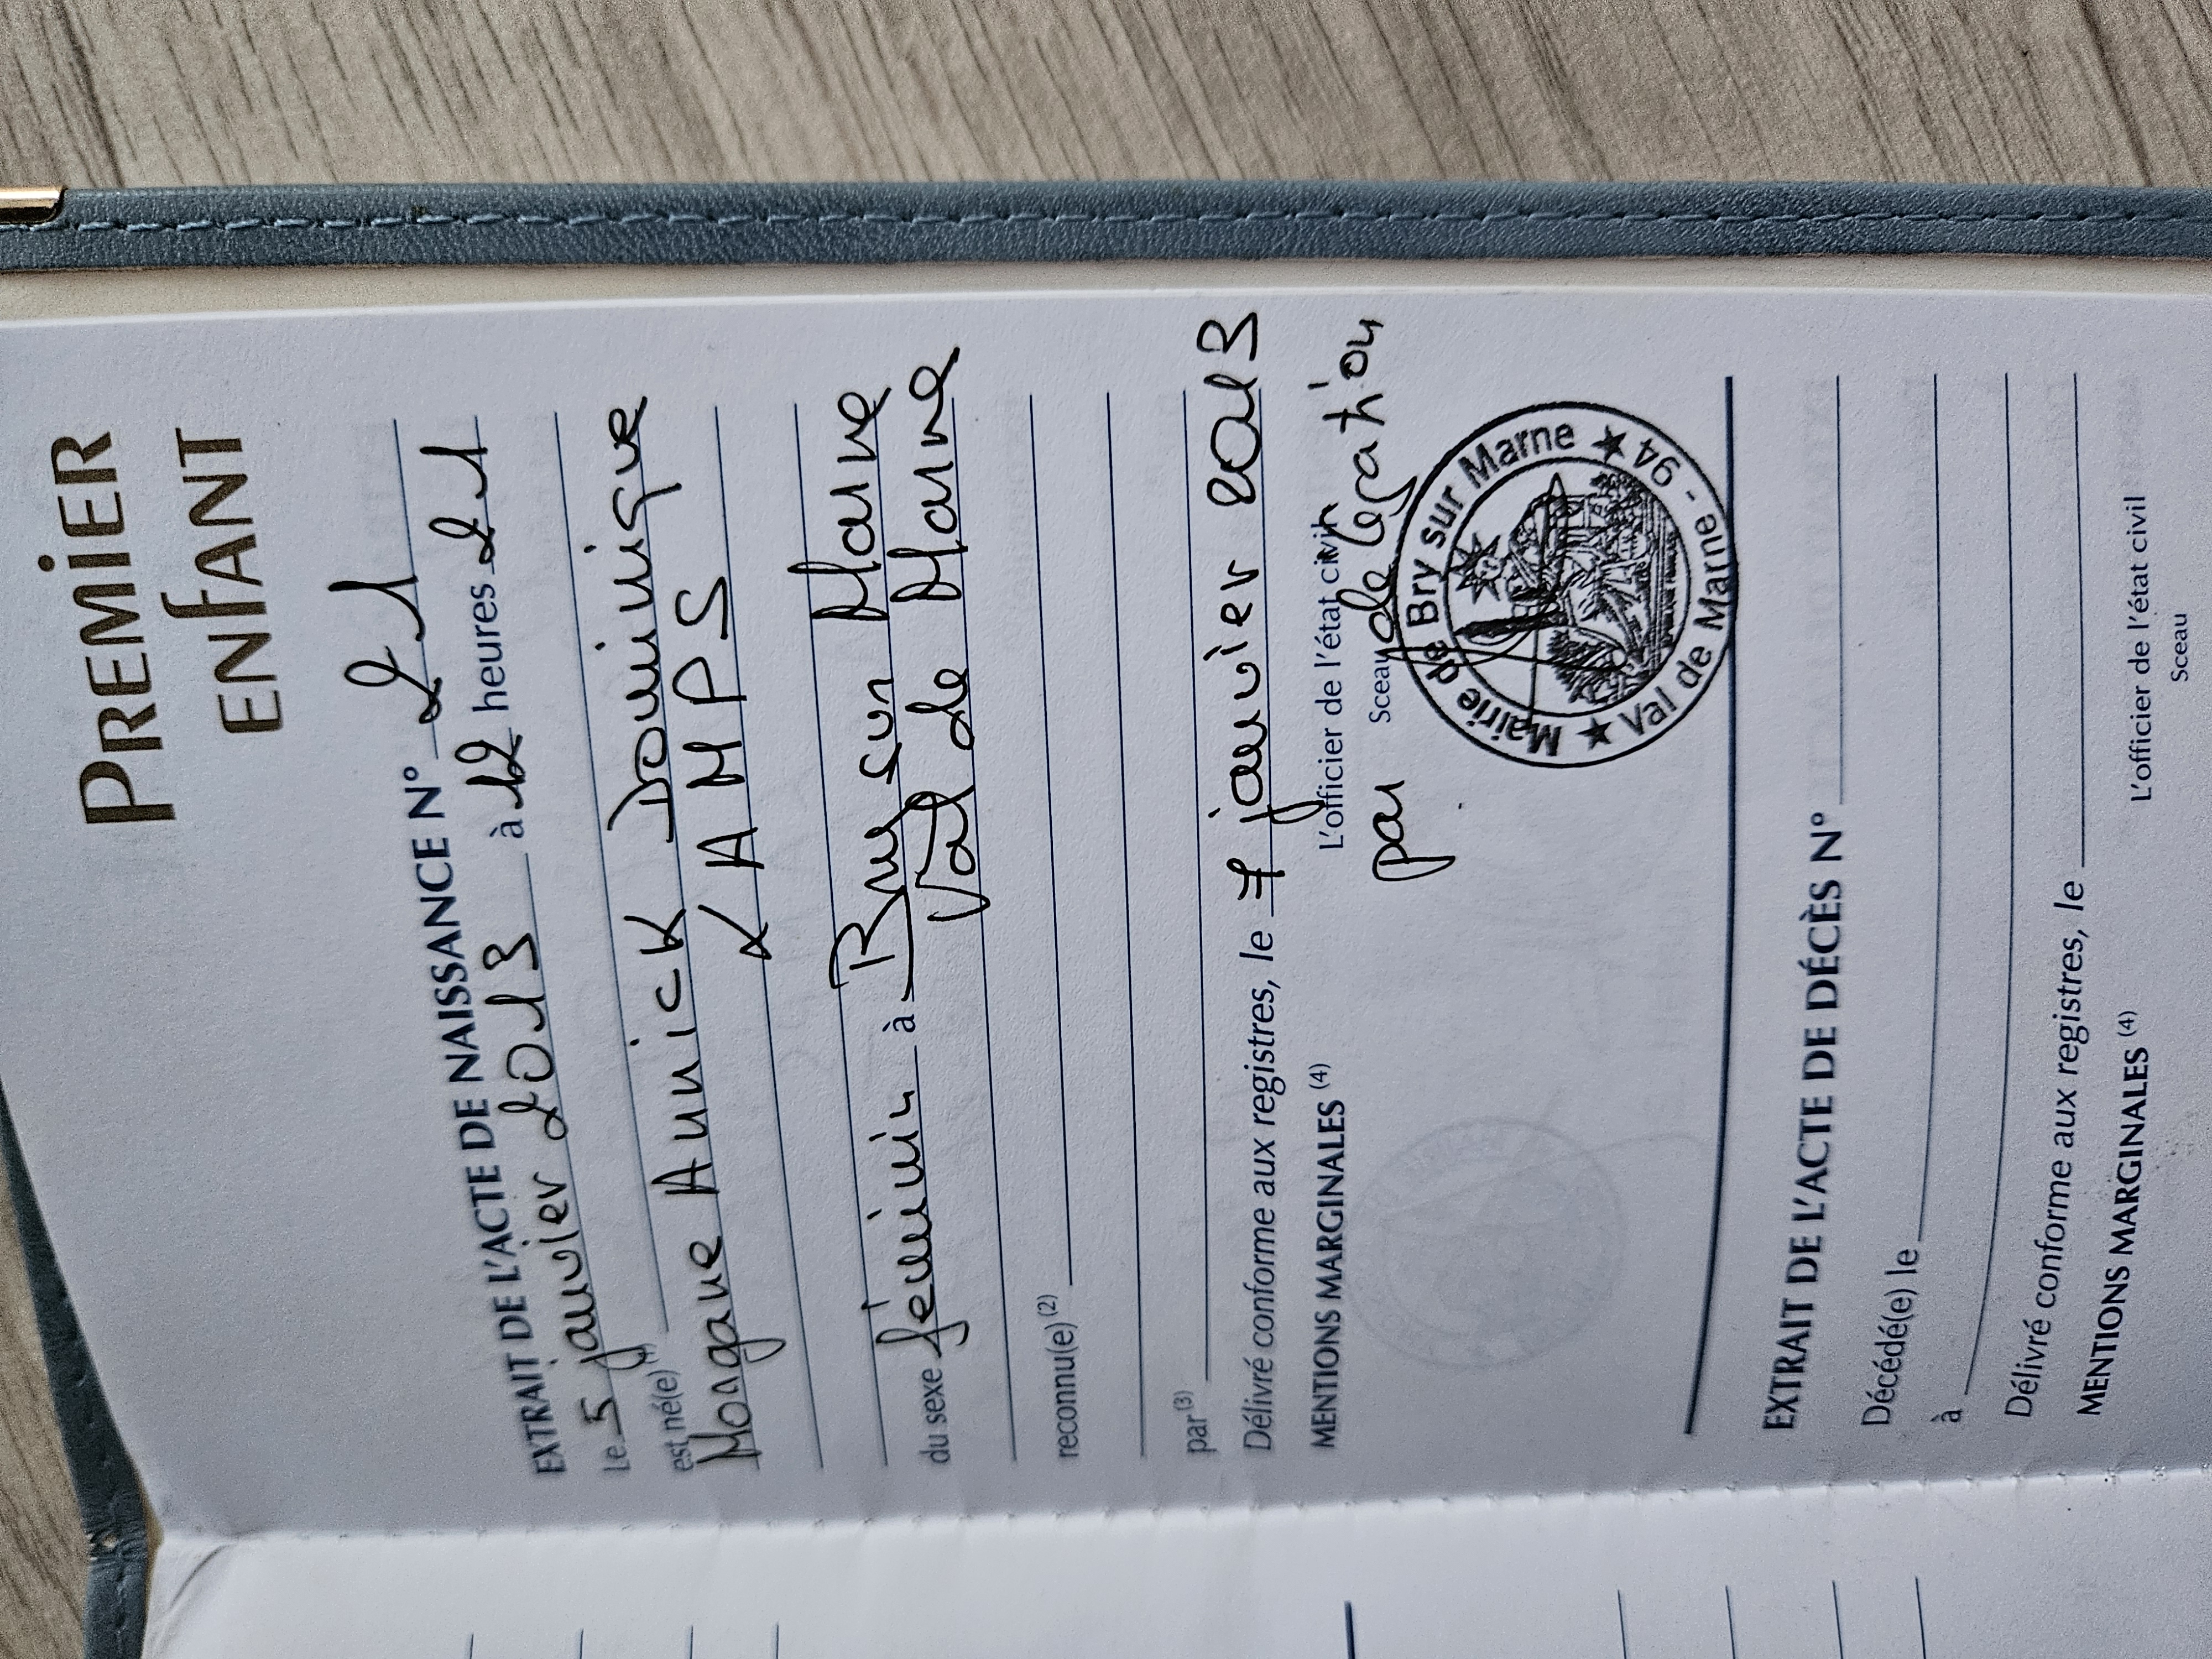 PREMIER
ENFANT
EXTRAIT DE L'ACTE DE NAISSANCE N° 21
Le 5 janvier 2013 à 12 heures 21
est né(e) (1)
Morgane Annick Dominique
KAMPS
du sexe féminin à Bry sur Marne
Val de Marne
reconnu(e) (2)
par (3)
Délivré conforme aux registres, le 7 janvier 2013
MENTIONS MARGINALES (4) L'officier de l'état civil
Sceau
par délégation
Mairie de Bry sur Marne
★ Val de Marne - 94 ★
EXTRAIT DE L'ACTE DE DÉCÈS N°
Décédé(e) le
à
Délivré conforme aux registres, le
MENTIONS MARGINALES (4) L'officier de l'état civil
Sceau